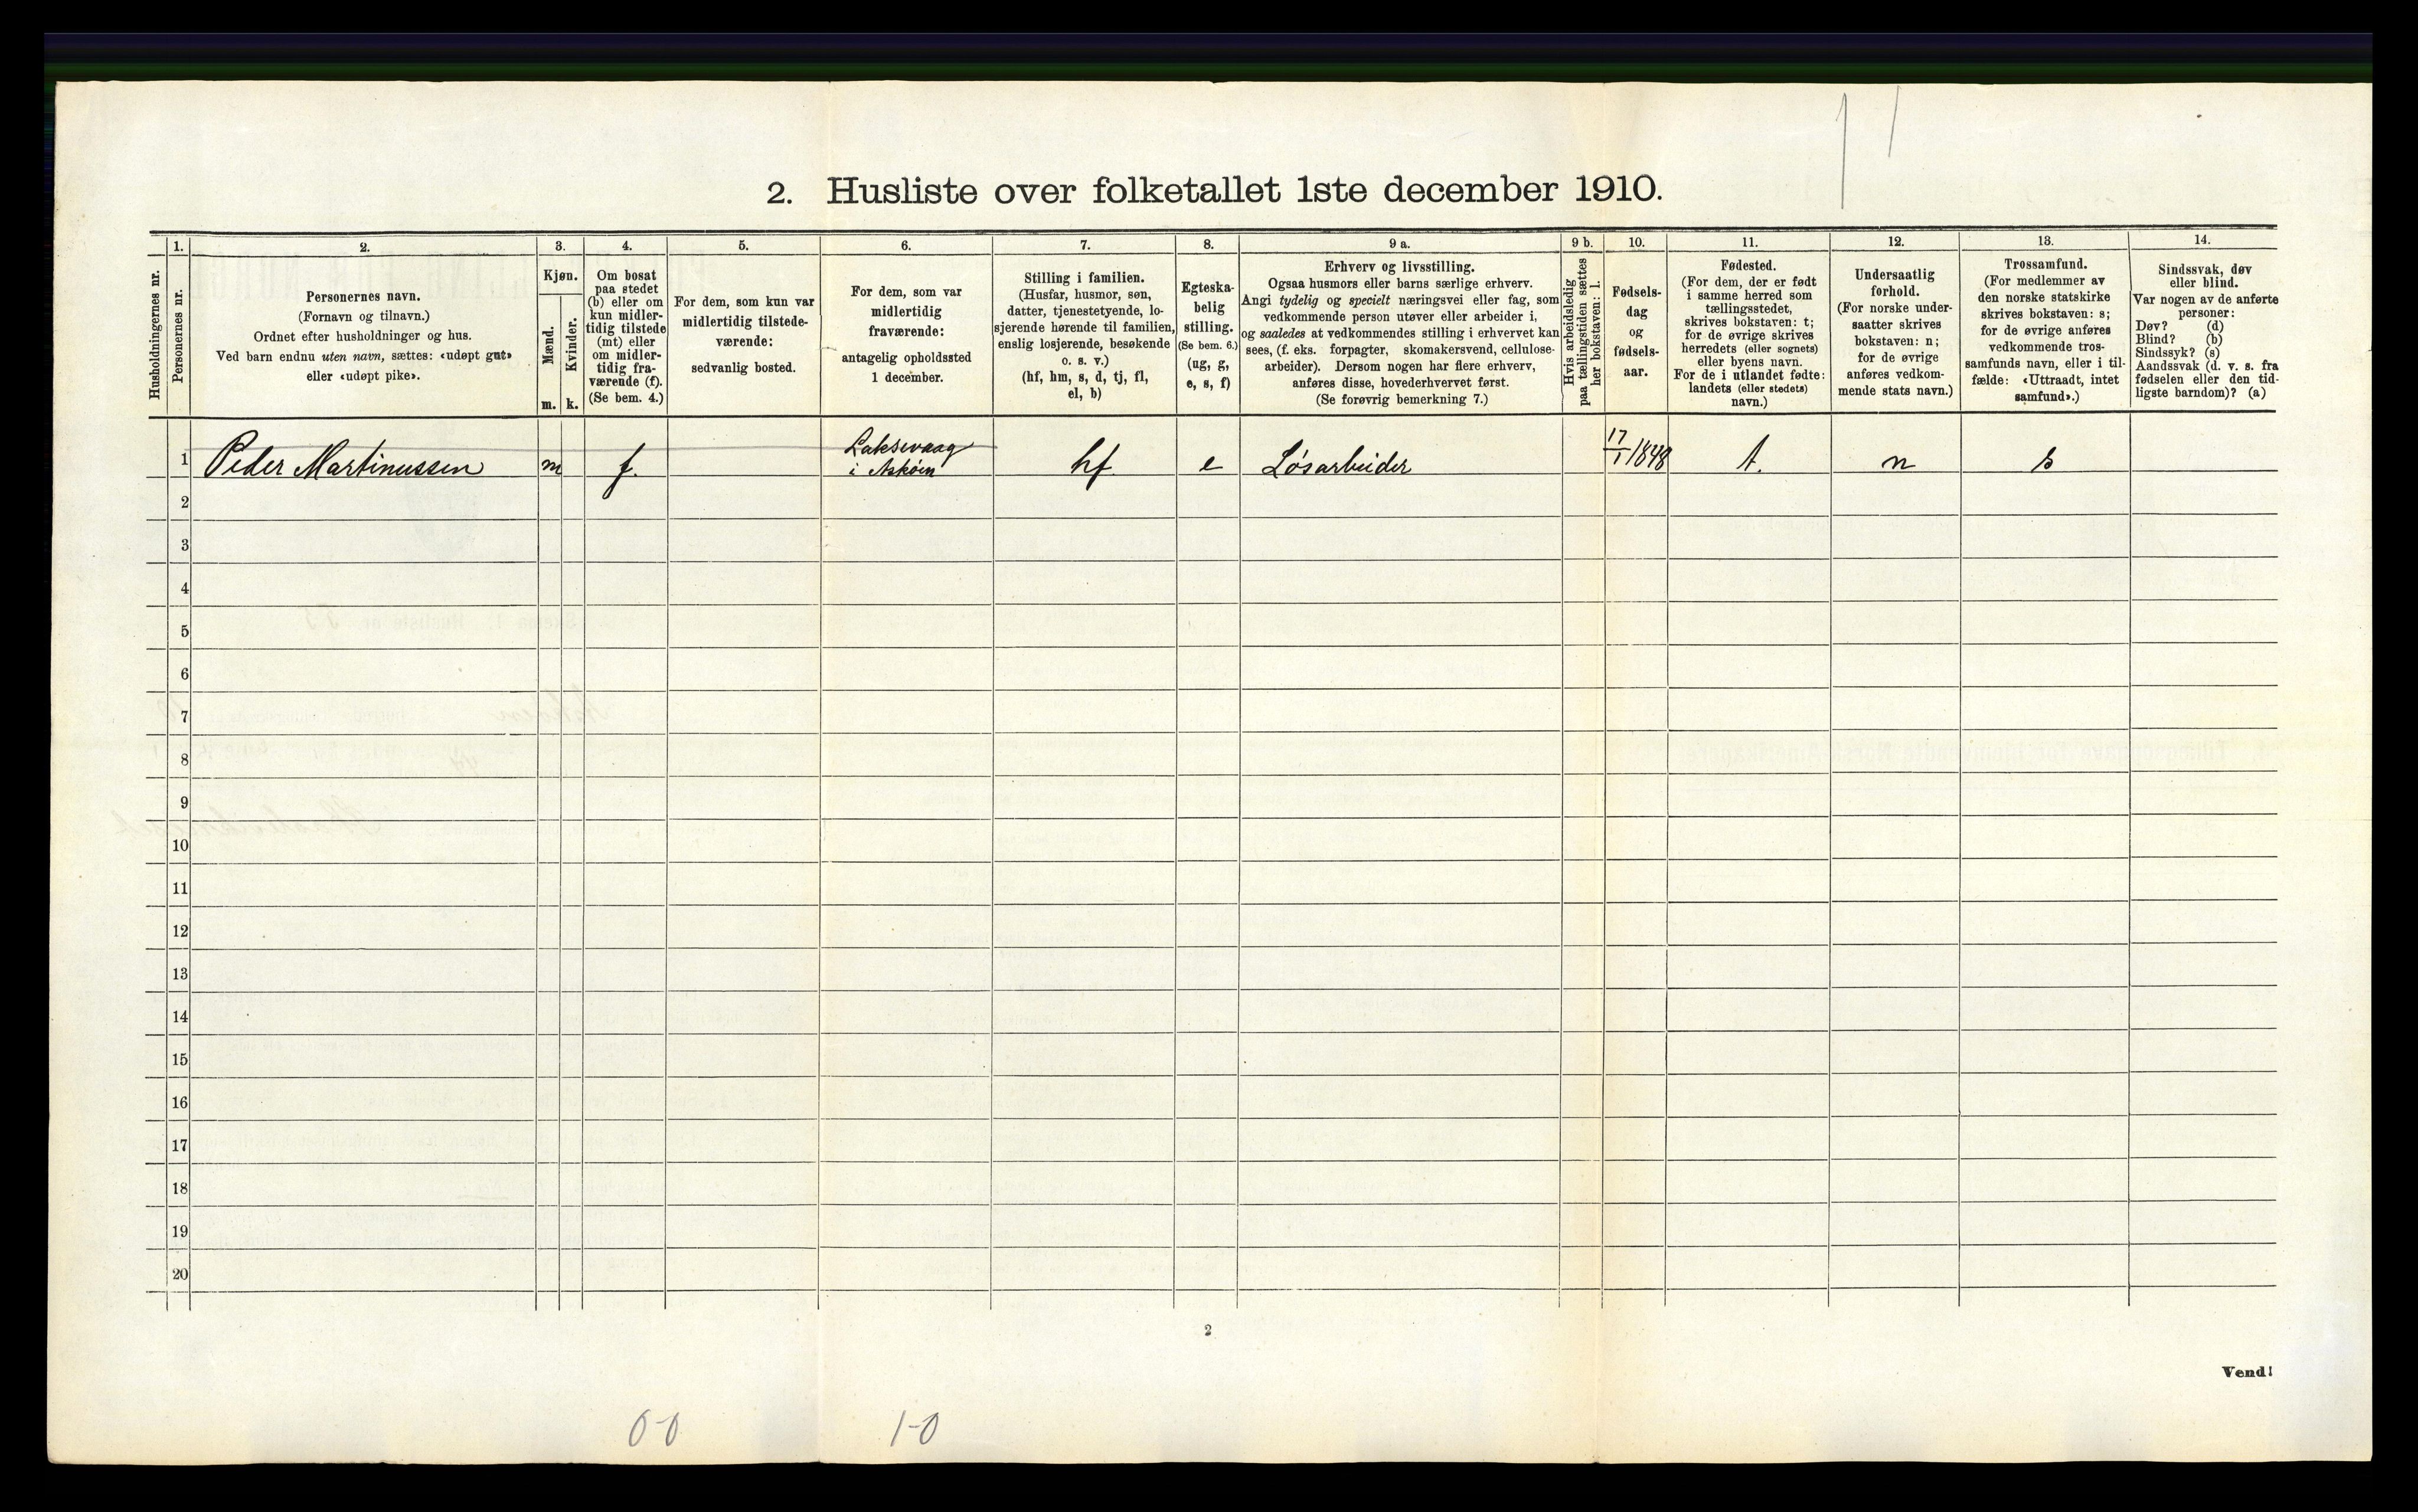 2. Husliste over folketallet 1ste december 1910.
Husholdningernes nr.
1.
Personernes nr.
2.
Personernes navn.
(Fornavn og tilnavn.)
Ordnet efter husholdninger og hus.
Ved barn endnu uten navn, sættes: «udøpt gut»
eller «udøpt pike».
3.
Kjøn.
Mænd.
Kvinder.
m. k.
4.
Om bosat
paa stedet
(b) eller om
kun midler-
tidig tilstede
(mt) eller
om midler-
tidig fra-
værende (f).
(Se bem. 4.)
5.
For dem, som kun var
midlertidig tilstede-
værende:
sedvanlig bosted.
6.
For dem, som var
midlertidig
fraværende:
antagelig opholdssted
1 december.
7.
Stilling i familien.
(Husfar, husmor, søn,
datter, tjenestetyende, lo-
sjerende hørende til familien,
enslig losjerende, besøkende
o. s. v.)
(hf, hm, s, d, tj, fl,
el, b)
8.
Egteska-
belig
stilling.
(Se bem. 6.)
(ug, g,
e, s, f)
9 a.
Erhverv og livsstilling.
Ogsaa husmors eller barns særlige erhverv.
Angi tydelig og specielt næringsvei eller fag, som
vedkommende person utøver eller arbeider i,
og saaledes at vedkommendes stilling i erhvervet kan
sees, (f. eks. forpagter, skomakersvend, cellulose-
arbeider). Dersom nogen har flere erhverv,
anføres disse, hovederhvervet først.
(Se forøvrig bemerkning 7.)
9 b.
Hvis arbeidsledig
paa tællingstiden sættes
her bokstaven: l.
10.
Fødsels-
dag
og
fødsels-
aar.
11.
Fødested.
(For dem, der er født
i samme herred som
tællingsstedet,
skrives bokstaven: t;
for de øvrige skrives
herredets (eller sognets)
eller byens navn.
For de i utlandet fødte:
landets (eller stedets)
navn.)
12.
Undersaatlig
forhold.
(For norske under-
saatter skrives
bokstaven: n;
for de øvrige
anføres vedkom-
mende stats navn.)
13.
Trossamfund.
(For medlemmer av
den norske statskirke
skrives bokstaven: s;
for de øvrige anføres
vedkommende tros-
samfunds navn, eller i til-
fælde: «Uttraadt, intet
samfund».)
14.
Sindssvak, døv
eller blind.
Var nogen av de anførte
personer:
Døv? (d)
Blind? (b)
Sindssyk? (s)
Aandssvak (d. v. s. fra
fødselen eller den tid-
ligste barndom)? (a)
1 Peder Martinussen m f. Laksevaag i Askøen hf e Løsarbeider 17/1 1848 t. n s
2
3
4
5
6
7
8
9
10
11
12
13
14
15
16
17
18
19
20
2
Vend!
0-0 1-0